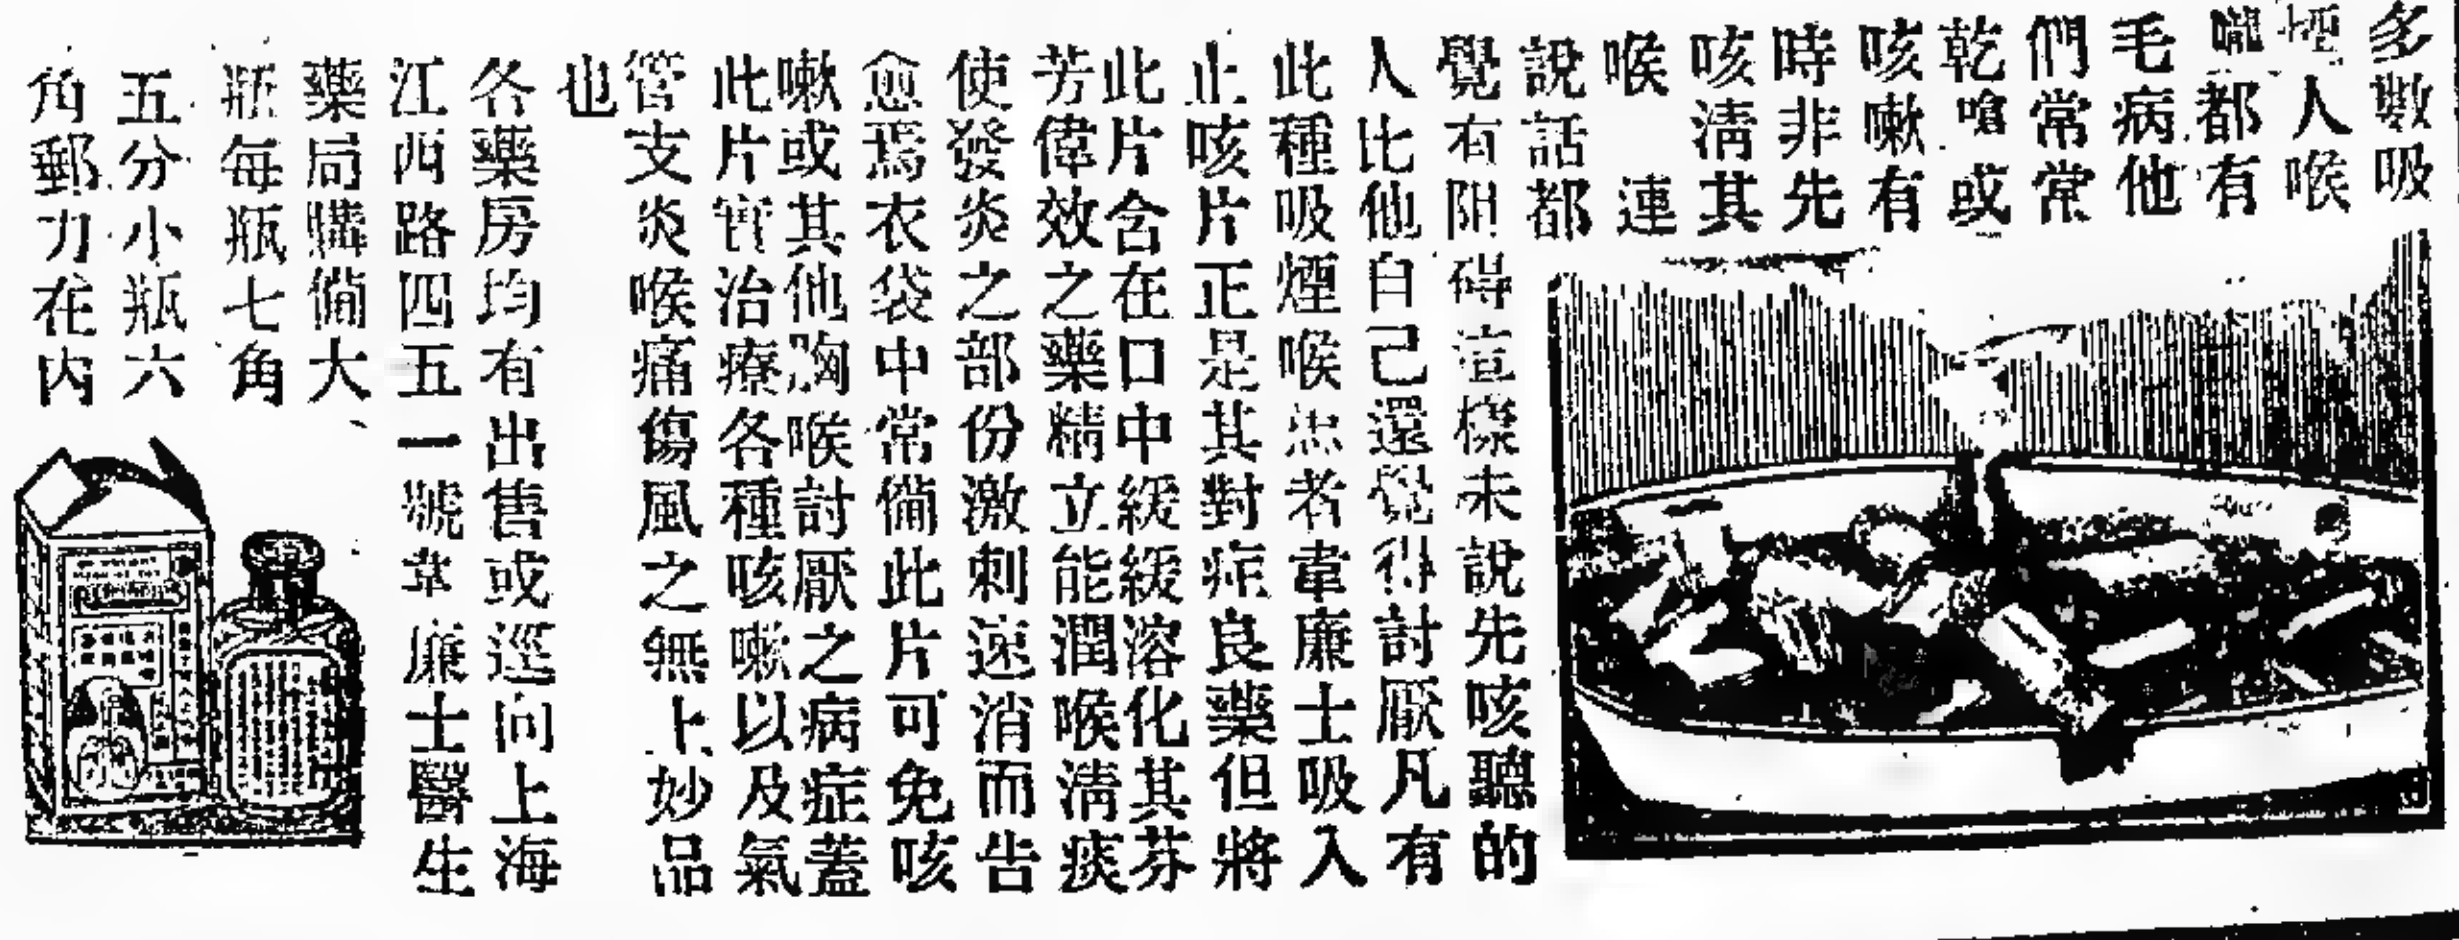 多數吸
煙人喉
嚨都有
毛病他
們常常
乾嗆或
咳嗽有
時非先
咳淸其
喉 連
說話都
覺有阻碍這樣未說先咳聽的
人比他自己還覺得討厭凡有
此種吸煙喉患者韋廉士吸入
止咳片正是其對症良藥但將
此片含在口中緩緩溶化其芬
芳偉效之藥精立能潤喉淸痰
使發炎之部份激刺速消而告
愈焉衣袋中常備此片可免咳
嗽或其他胸喉討厭之病症蓋
此片實治療各種咳嗽以及氣
管支炎喉痛傷風之無上妙品
也
各藥房均有出售或逕向上海
江西路四五一號韋廉士醫生
藥局購備大
瓶每瓶七角
五分小瓶六
角郵力在內